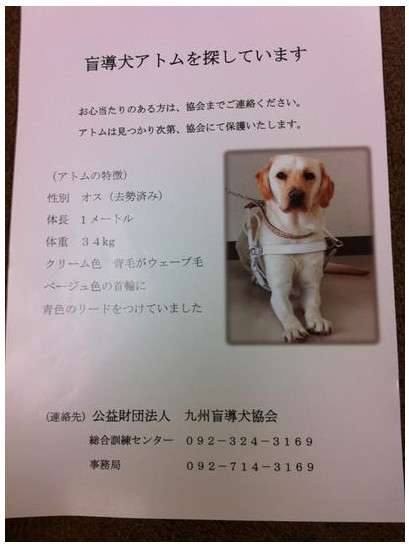 盲導犬アトムを探しています
お心当たりのある方は、協会までご連絡ください。
アトムは見つかり次第、協会にて保護いたします。
（アトムの特徴）
性別　オス（去勢済み）
体長　１メートル
体重　３４kg
クリーム色　背毛がウェーブ毛
ベージュ色の首輪に
青色のリードをつけていました
（連絡先）公益財団法人　九州盲導犬協会
総合訓練センター　０９２－３２４－３１６９
事務局　０９２－７１４－３１６９